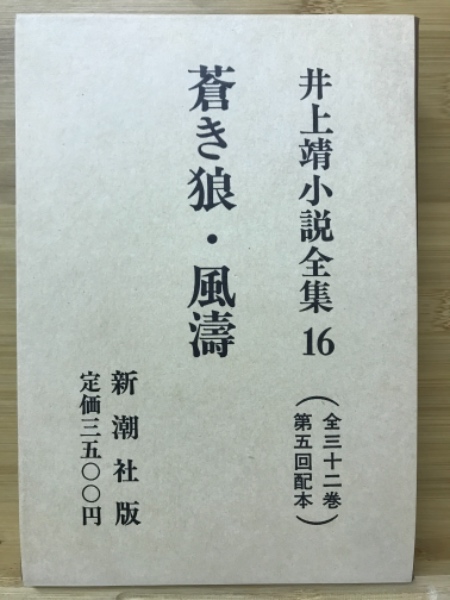 井上靖小説全集 16
（全三十二巻
第五回配本）
蒼き狼・風濤
新潮社版
定価三五〇〇円